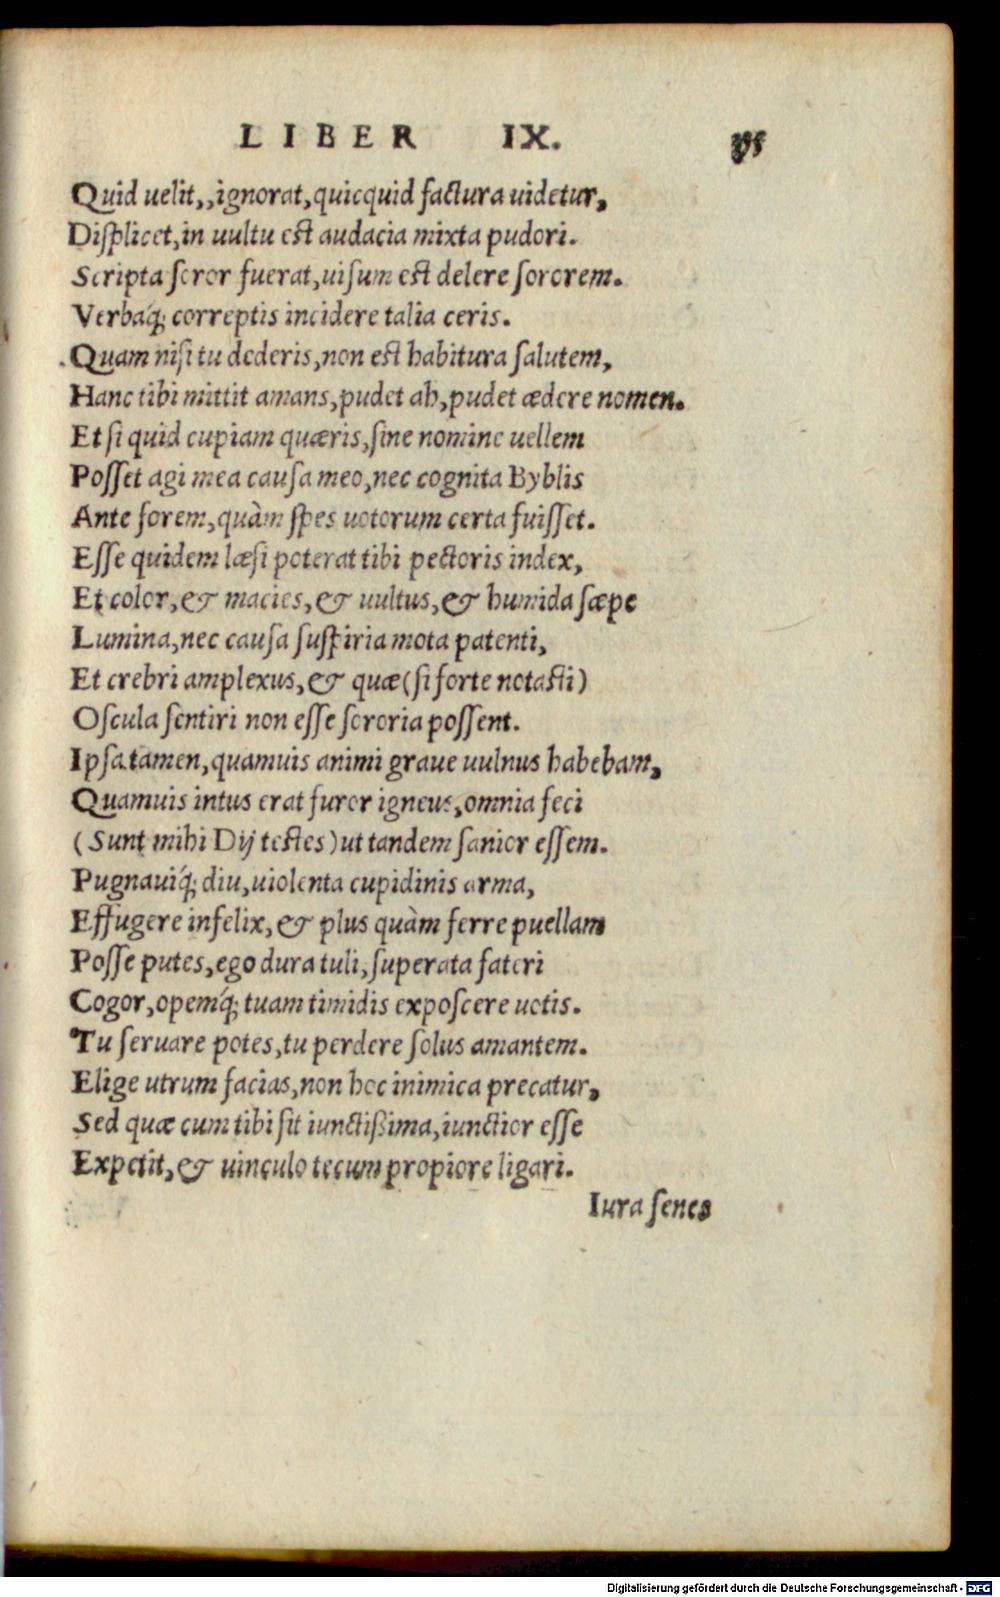 LIBER IX.
Quid uelit,,ignorat,quicquid factura uidetur,
Displicet,in uultu est audacia mixta pudori.
Scripta soror fuerat,uisum est delere sororem.
Verbaq́; correptis incidere talia ceris.
.Quam nisi tu dederis,non est habitura salutem,
Hanc tibi mittit amans,pudet ah,pudet ædere nomen.
Et si quid cupiam quæris,sine nomine uellem
Posset agi mea causa meo,nec cognita Byblis
Ante forem,quàm spes uotorum certa fuisset.
Esse quidem læsi poterat tibi pectoris index,
Et color,& macies,& uultus,& humida sæpe
Lumina,nec causa suspiria mota patenti,
Et crebri amplexus,& quæ(si forte notasti)
Oscula sentiri non esse sororia possent.
Ipsa tamen,quamuis animi graue uulnus habebam,
Quamuis intus erat furor igneus,omnia feci
(Sunt mihi Dij testes)ut tandem sanior essem.
Pugnauiq́; diu,uiolenta cupidinis arma,
Effugere infelix,& plus quàm ferre puellam
Posse putes,ego dura tuli,superata fateri
Cogor,opemq́; tuam timidis exposcere uotis.
Tu seruare potes,tu perdere solus amantem.
Elige utrum facias,non hoc inimica precatur,
Sed quæ cum tibi sit iunctißima,iunctior esse
Expetit,& uinculo tecum propiore ligari.
Iura senes
Digitalisierung gefördert durch die Deutsche Forschungsgemeinschaft - DFG